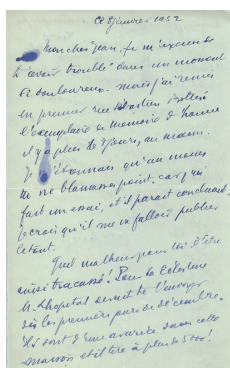 Ce 8 janvier 1952
Mon cher Jean, je m'excuse de
t'avoir troublé dans un moment
si douloureux. mais j'ai remis
en premier rue Sébastien Bottin
l'exemplaire
il y a plus de 8 jours, au moins.
Je m'étonnais qu'au moins
tu ne blamasses point. car j'en
fait un essai, et il parait concluant.
Je crois qu'il me va falloir publier
le tout.
Quel malheur pour toi d'être
aussi tracassé! Pour la Célestine
M. Lhopital devait te l'envoyer
dès les premiers jours de décembre.
Ils sont d'une avarice dans cette
maison et il tire à plus de 5000!